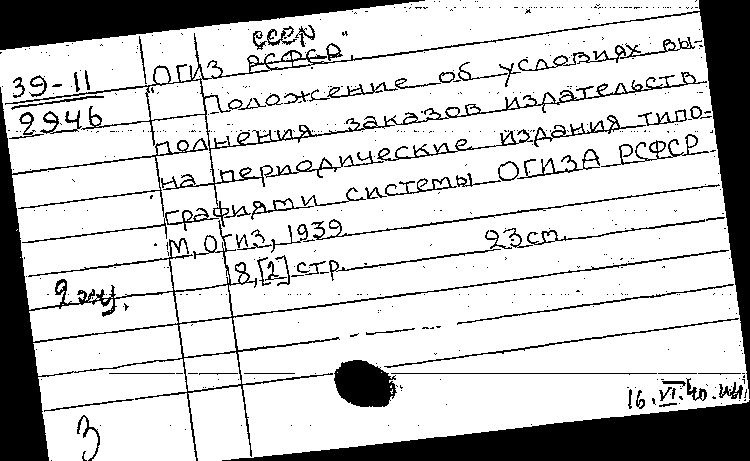 СССР
39-11
2946
"ОГИЗ РСФСР".
Положение об условиях вы-
полнения заказов издательств
на периодические издания типо-
графиями системы ОГИЗА РСФСР
М, ОГИЗ, 1939
18,[2] стр. 23 ст.
2
16.VI.40.
3